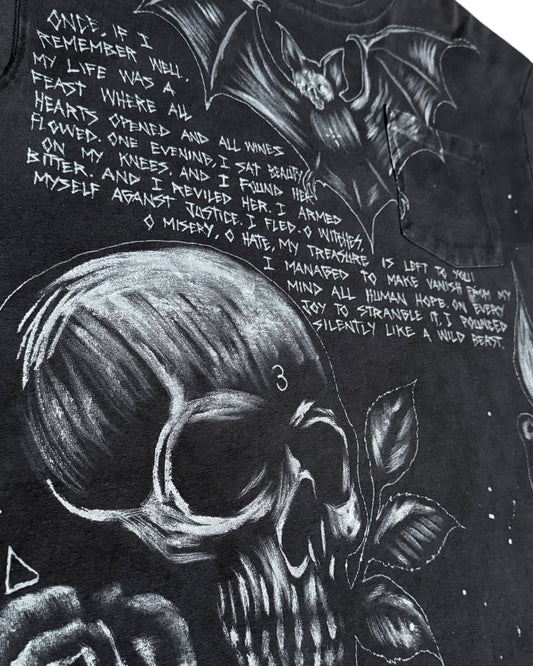 ONCE, IF I
REMEMBER WELL,
MY LIFE WAS A
FEAST WHERE ALL
HEARTS OPENED AND ALL WINES
FLOWED. ONE EVENING, I SAT BEAUTY
ON MY KNEES. AND I FOUND HER
BITTER. AND I REVILED HER. I ARMED
MYSELF AGAINST JUSTICE. I FLED. O WITCHES,
O MISERY, O HATE, MY TREASURE IS LEFT TO YOU!
I MANAGED TO MAKE VANISH FROM MY
MIND ALL HUMAN HOPE. ON EVERY
JOY TO STRANGLE IT, I POUNCED
SILENTLY LIKE A WILD BEAST.
3